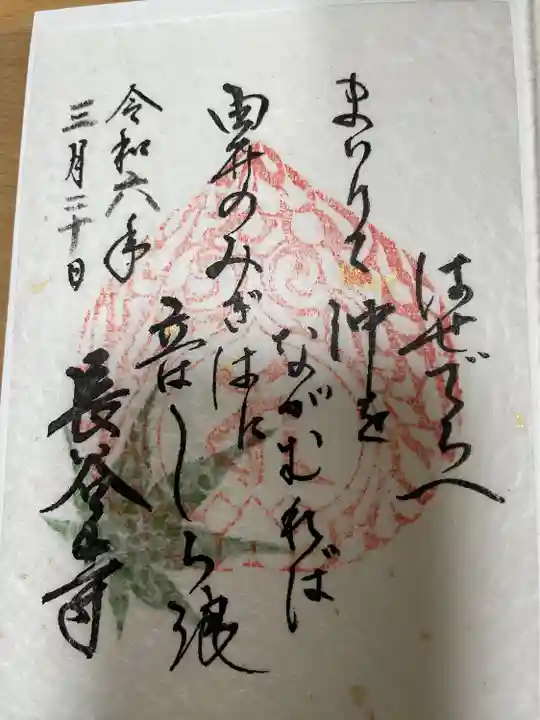 はせでらへ
まいりて沖を
ながむれば
由井のみぎはに
立はしら浪
令和六年
三月二十日
長谷寺